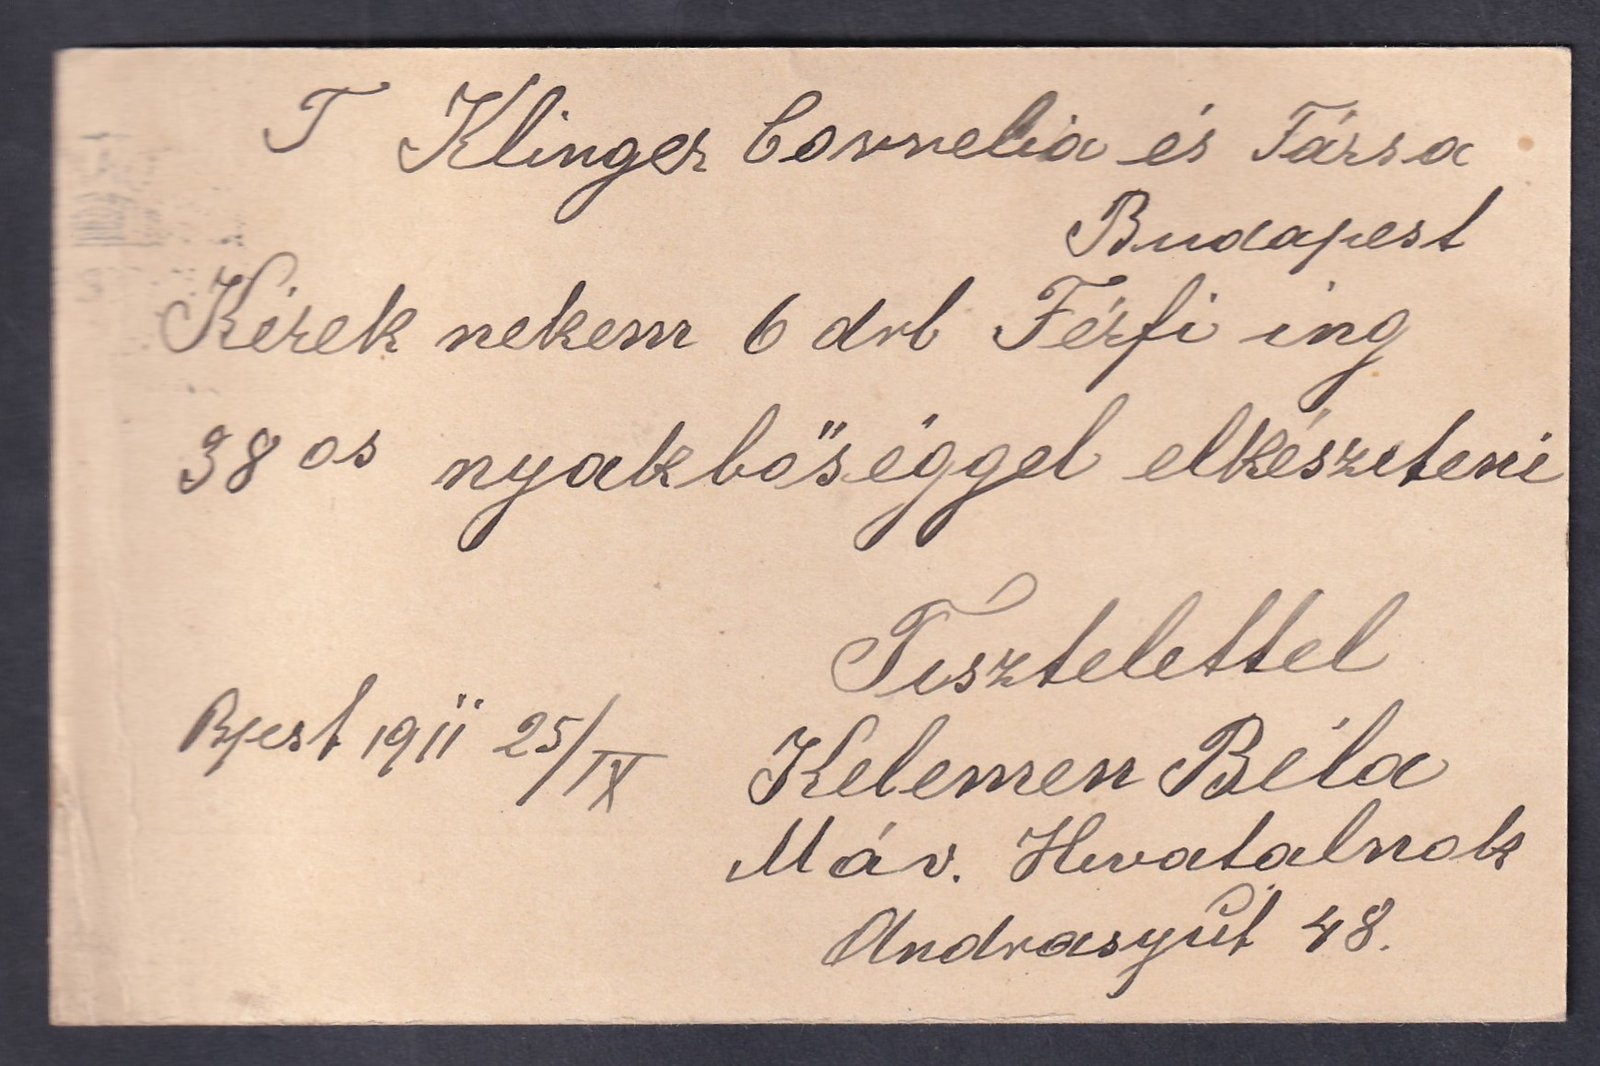 T Klinger Cornelia és Társa
Budapest
Kérek nekem 6 drb Férfi ing
38 os nyakbőséggel elkészíteni
Tisztelettel
Bpest 1911 25/IX Kelemen Béla
Máv. Hivatalnok
Andrasyút 48.